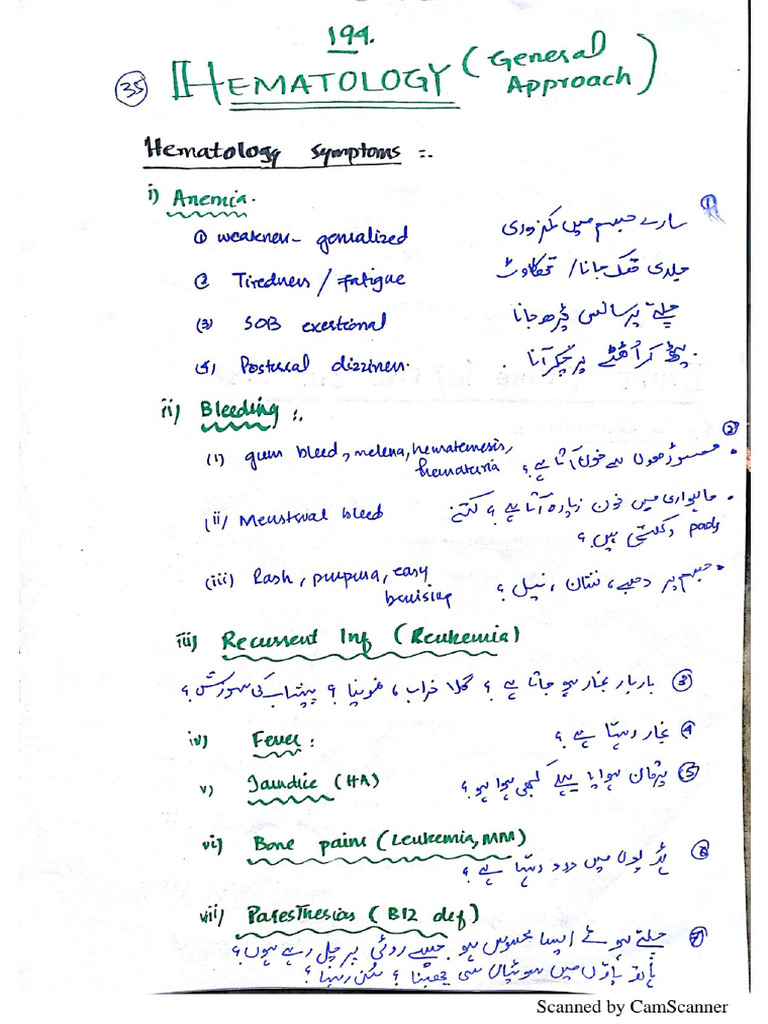 194.
35 HEMATOLOGY (General Approach)
Hematology symptoms :-
i) Anemia.
① weakness - genralized سارے جسم میں کمزوری ①
② Tiredness / fatigue جلدی تھک جانا / تھکاوٹ
(3) SOB exertional چلنے پر سانس چڑھ جانا
(4) Postural dizziness. بیٹھ کر اُٹھنے پر چکر آنا .
ii) Bleeding :.
(i) gum bleed, melena, hematemesis, hematuria ② • مسوڑھوں سے خون آتا ہے ؟
(ii) Menstrual bleed • ماہواری میں خون زیادہ آتا ہے ؟ کتنے
pads لگتی ہیں ؟
(iii) Rash, purpura, easy bruising • جسم پر دھبے ، نشان ، نیل ؟
iii) Recurrent Inf (Leukemia)
③ بار بار بخار ہو جاتا ہے ؟ گلا خراب ، نمونیا ؟ پیشاب کی سوزش ؟
iv) Fever : ④ بخار رہتا ہے ؟
v) Jaundice (HA) ⑤ یرقان ہوا یا پہلے کبھی ہوا ہو ؟
vi) Bone pains (Leukemia, MM)
⑥ ہڈیوں میں درد رہتا ہے ؟
vii) Paresthesias (B12 def)
⑦ چلتے ہوئے ایسا محسوس ہو جیسے روئی پر چل رہے ہوں ؟
ہاتھ پاؤں میں سوئیاں سی چھبنا ؟ سُن رہنا ؟
Scanned by CamScanner